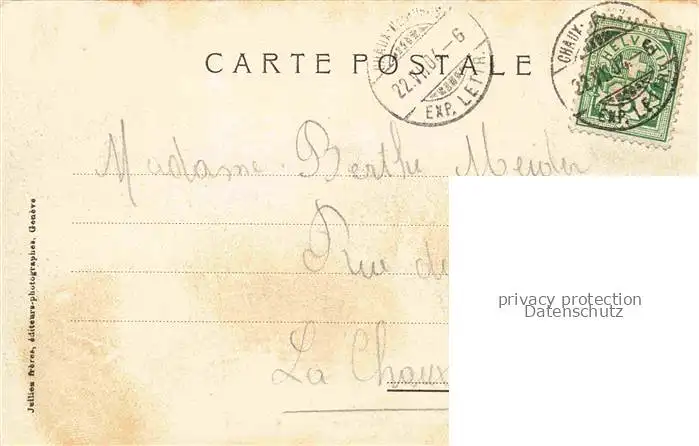 CARTE POSTALE
22.VII.04.-6
EXP. LETTR.
CHAUX-
HELVETIA
EXP. LE
Madame Berthe Meider
Rue de
La Chaux
Jullien frères, éditeurs-photographes, Genève
privacy protection
Datenschutz